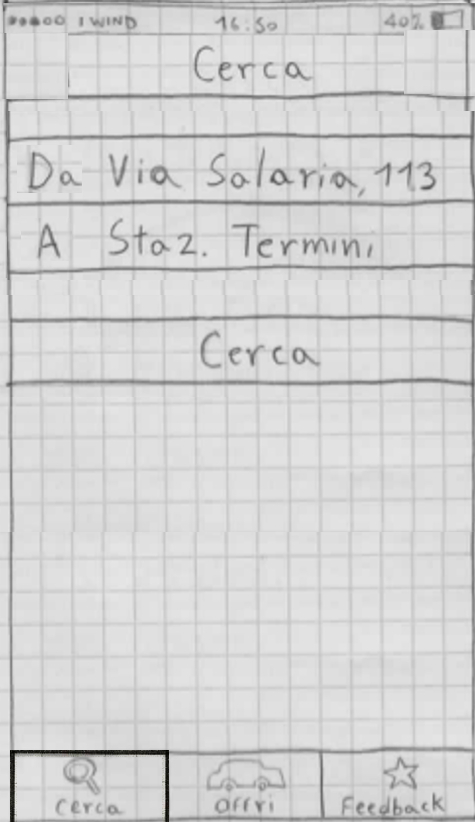 I WIND 16:50 40%
Cerca
Da Via Salaria, 113
A Staz. Termini
Cerca
cerca offri Feedback